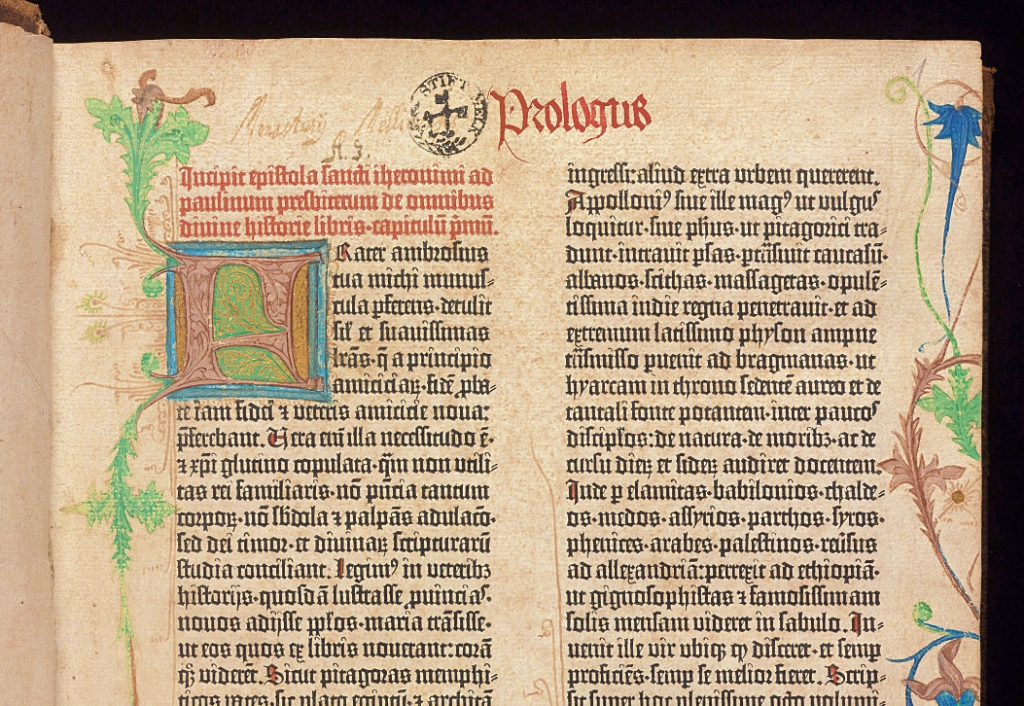 Prologus
STIFT MELK
A. 3.
Incipit epistola sancti iheronimi ad
paulinum presbiterum de omnibus
divine historie libris·capitulū p̄mū.
Frater ambrosius
tua michi munus-
cula ꝑferens·detulit
sił et suauissimas
lr̄as·q̄ a principio
amiciciaꝝ·fidē ꝓba-
te iam fidei ⁊ veteris amicicie noua:
p̄ferebant. Uera em̄ illa necessitudo ē·
⁊ xp̄i glutino copulata·qm̄ non vtili-
tas rei familiaris·nō p̄ncia tantum
corpoꝝ·nō sb̄dola ⁊ palpās adulaco·
sed dei timor·et diuinaꝝ scripturarū
studia conciliant. Legimꝰ in veteribꝫ
historijs·quosdā lustrasse ꝓuincias·
nouos adijsse ppl̄os·maria trāsisse·
ut eos quos ex libris nouerant: corā
qꝫ viderēt. Sicut pitagoras memphi-
ticos vates·sic plato egiptū·⁊ architā
ingressi: aliud extra vrbem quererent.
Appolloniꝰ siue ille magꝰ ut vulgus
loquitur·siue ph̄us·ut pitagorici tra-
dunt·intrauit ꝑsas·ꝑtrāsiuit caucasū·
albanos·scithas·massagetas·opulē-
tissima indie regna penetrauit·et ad
extremum latissimo physon ampne
trāsmisso puenit ad bragmanas·ut
hyarcam in throno sedentē aureo et de
tantali fonte potantem·inter paucos
discipl̄os: de natura·de moribꝫ·ac de
cursu dieꝝ et sideꝝ audiret docentem.
Inde ꝑ elamitas·babilonios·chalde-
os·medos·assyrios·parthos·syros·
phenices·arabes·palestinos·reūsus
ad allexandriā: perrexit ad ethiopiā·
ut gignosophistas ⁊ famosissimam
solis mensam videret in sabulo. In-
uenit ille vir vbiqꝫ qꝫ disceret·et semꝑ
proficiēs·semꝑ se melior fieret. Scrip-
sit super hoc plenissime octo volumi-